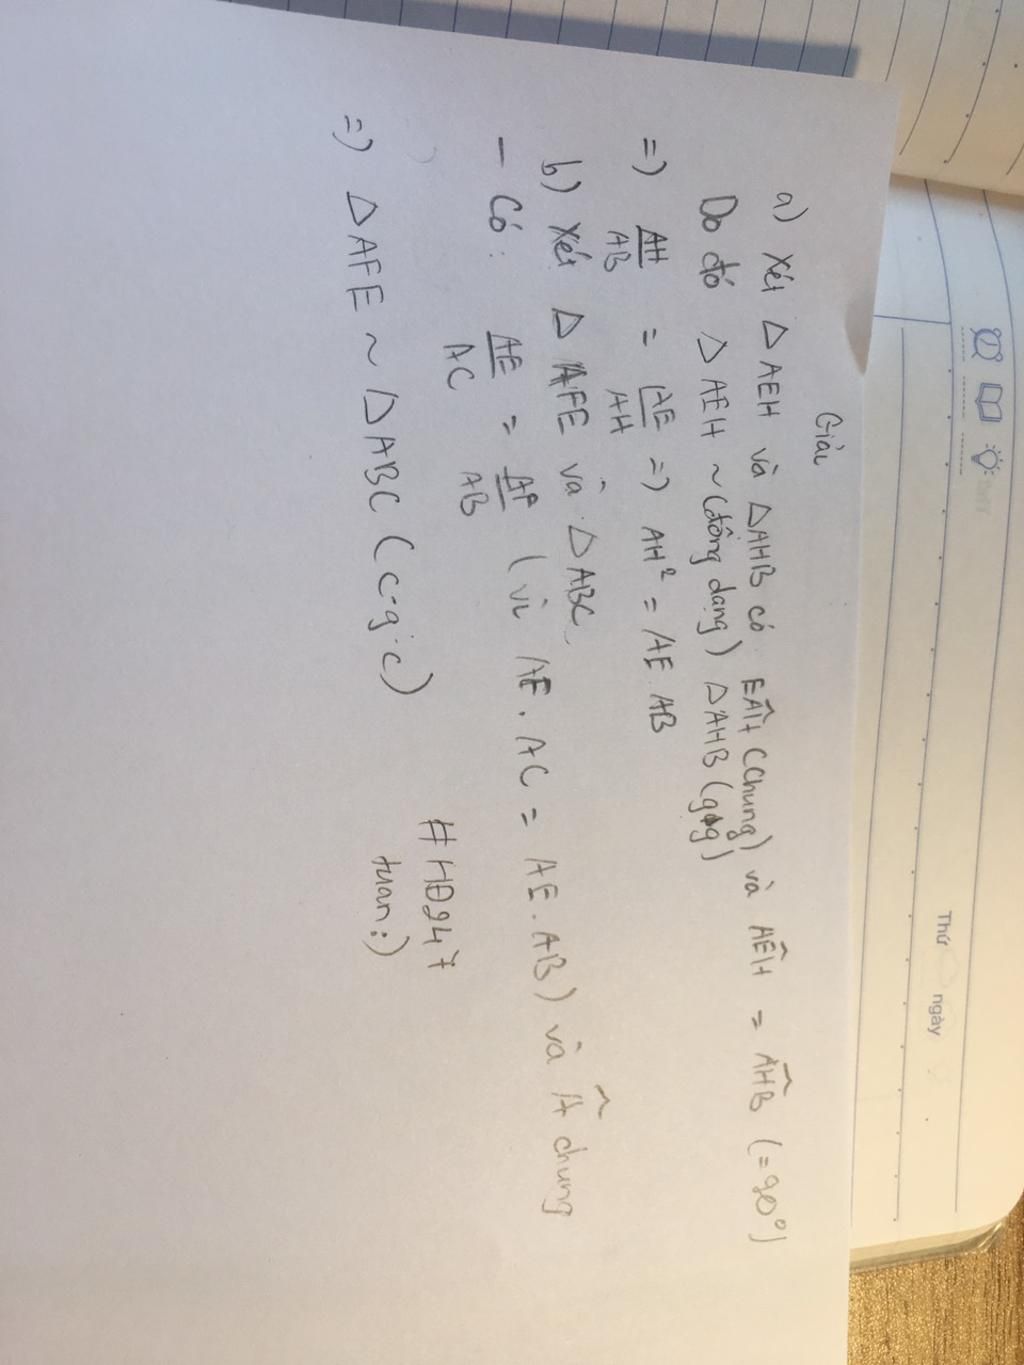 Thứ ngày
Giải
a) Xét Δ AEH và ΔAHB có EÂH (Chung) và AÊH = AĤB (=90°)
Do đó Δ AEH ~ (đồng dạng) ΔAHB (g.g)
=) AH/AB = AE/AH =) AH² = AE.AB
b) Xét Δ AFE và ΔABC
- Có: AE/AC = AF/AB (vì AE.AC = AE.AB) và Â chung
=) ΔAFE ~ ΔABC (c-g-c)
#HĐ247
tuan:)